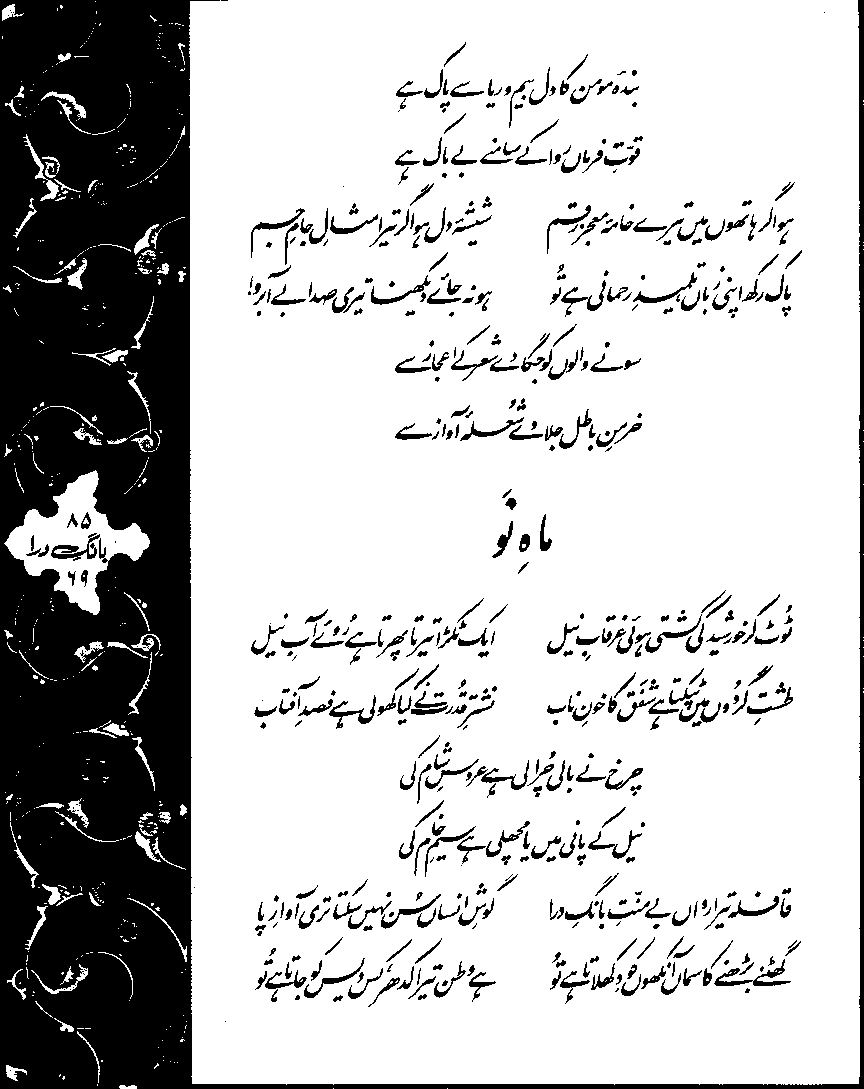 بندۂ مومن کا دل بیم و ریا سے پاک ہے
قوّتِ فرماں روا کے سامنے بے باک ہے
ہو اگر ہاتھوں میں تیرے خامۂ معجز رقم شیشۂ دل ہو اگر تیرا مثالِ جامِ جم
پاک رکھ اپنی زباں، تلمیذِ رحمانی ہے تُو ہو نہ جائے دیکھنا تیری صدا بے آبرو!
سونے والوں کو جگا دے شعر کے اعجاز سے
خرمنِ باطل جلا دے شُعلۂ آواز سے
ماہِ نَو
ٹُوٹ کر خورشید کی کشتی ہوئی غرقابِ نیل ایک ٹکڑا تیرتا پھرتا ہے رُوئے آبِ نیل
طشتِ گردُوں میں ٹپکتا ہے شفَق کا خونِ ناب نشترِ قُدرت نے کیا کھولی ہے فصدِ آفتاب
چرخ نے بالی چُرا لی ہے عروسِ شام کی
نیل کے پانی میں یا مچھلی ہے سیمِ خام کی
قافلہ تیرا رواں بے منّتِ بانگِ درا گوشِ انساں سُن نہیں سکتا تری آوازِ پا
گھٹنے بڑھنے کا سماں آنکھوں کو دکھلاتا ہے تُو ہے وطن تیرا کدھر، کس دیس کو جاتا ہے تُو
۸۵
بانگِ درا
۶۹